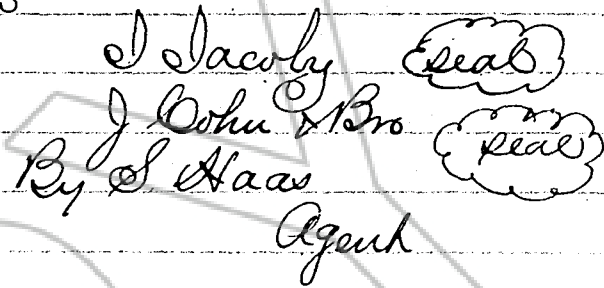 I Jacoby seal
J Cohn & Bro seal
By S Haas
Agent